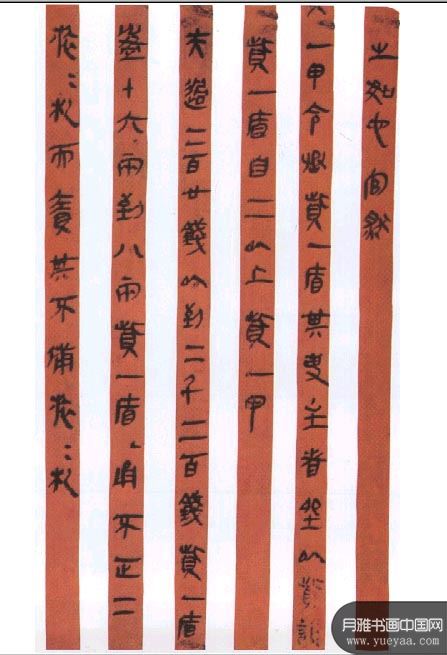 之如它官然
一甲令丞貲一盾其吏主者坐以貲誶
貲一盾自二以上貲一甲
夫過二百廿錢以到二千二百錢貲一盾
盈十六兩到八兩貲一盾甬不正二
而責其不備
月雅书画中国网
www.yueyaa.com